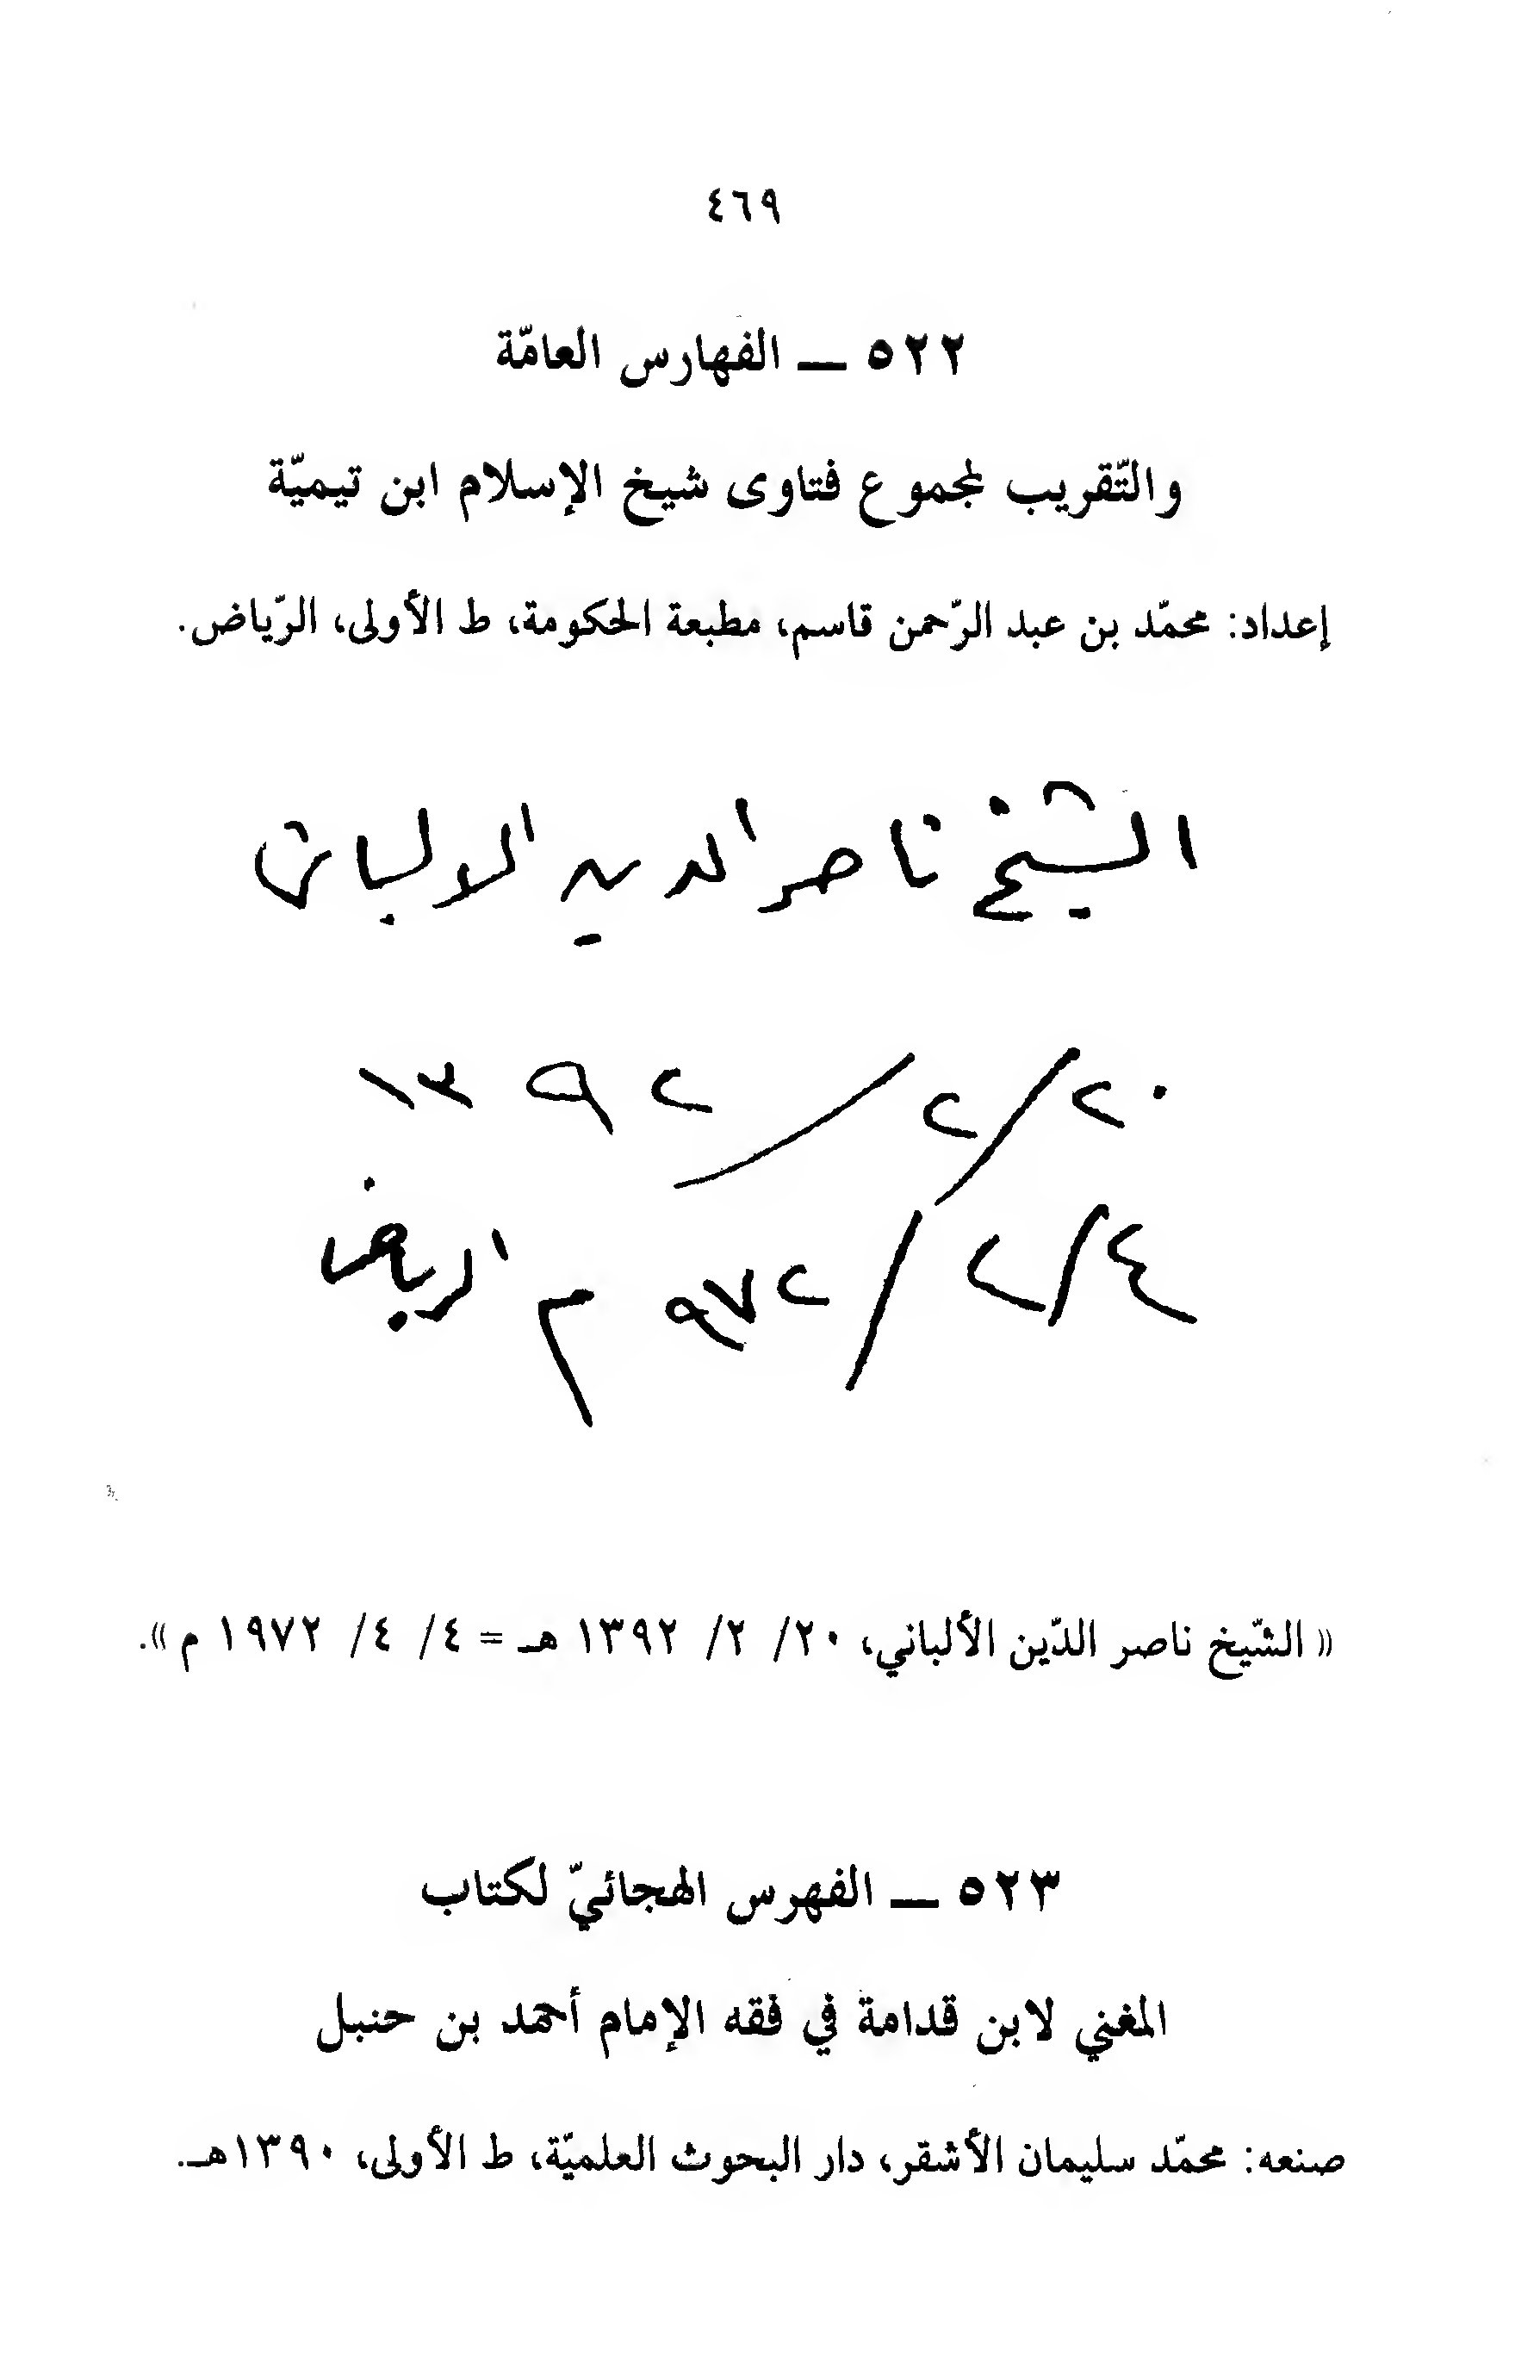 ٤٦٩
٥٢٢ ــ الفهارس العامّة
والتّقريب لمجموع فتاوى شيخ الإسلام ابن تيميّة
إعداد: محمّد بن عبد الرّحمن قاسم، مطبعة الحكومة، ط الأولى، الرّياض.
الشيخ ناصر الدين الالباني
٢٠/٢/١٣٩٢
٤/٤/٩٧٢م الرياض
« الشّيخ ناصر الدّين الألباني، ٢٠/ ٢/ ١٣٩٢ هـ = ٤/ ٤/ ١٩٧٢ م ».
٥٢٣ ــ الفهرس الهجائيّ لكتاب
المغني لابن قدامة في فقه الإمام أحمد بن حنبل
صنعه: محمّد سليمان الأشقر، دار البحوث العلميّة، ط الأولى، ١٣٩٠هـ.